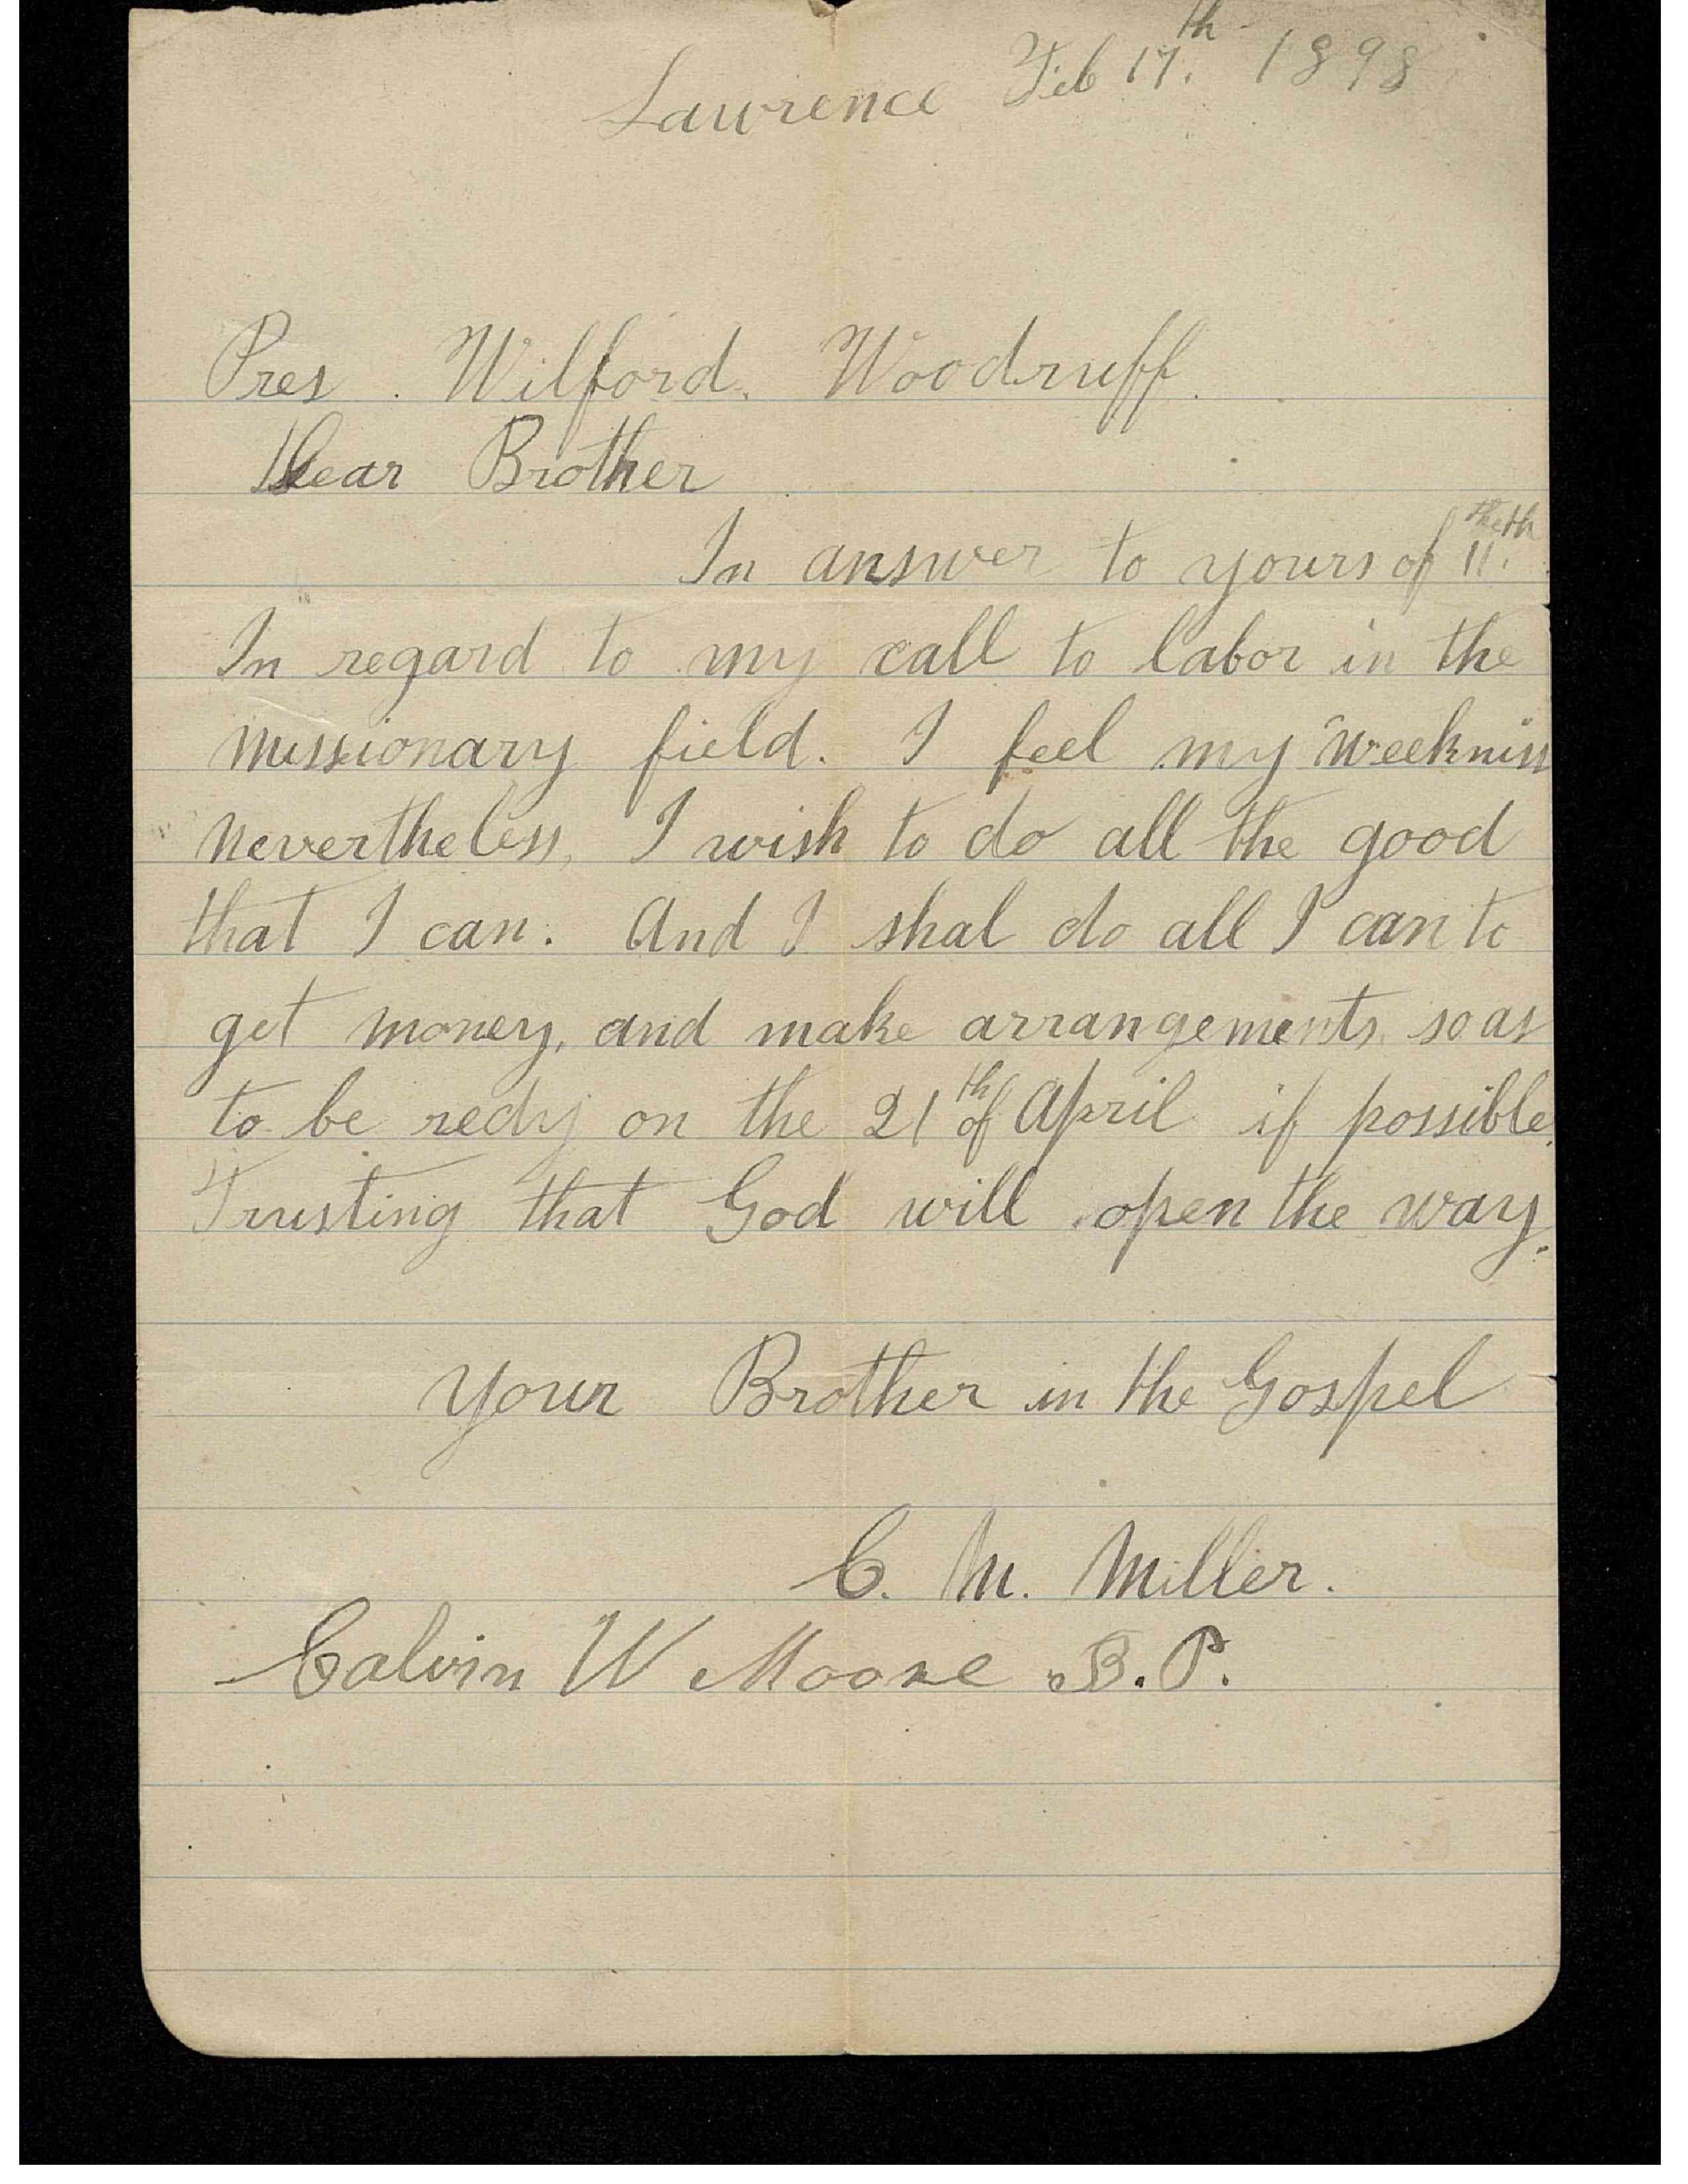 Lawrence Feb 17.th 1898
Pres. Wilford. Woodruff.
Dear Brother
In answer to yours of 11.th
In regard to my call to labor in the
missionary field. I feel my weekniss
nevertheless, I wish to do all the good
that I can. And I shal do all I can to
get money, and make arrangements so as
to be redy on the 21th of April if possible.
Trusting that God will open the way.
Your Brother in the Gospel
C. M. Miller.
Calvin W Moore B.P.